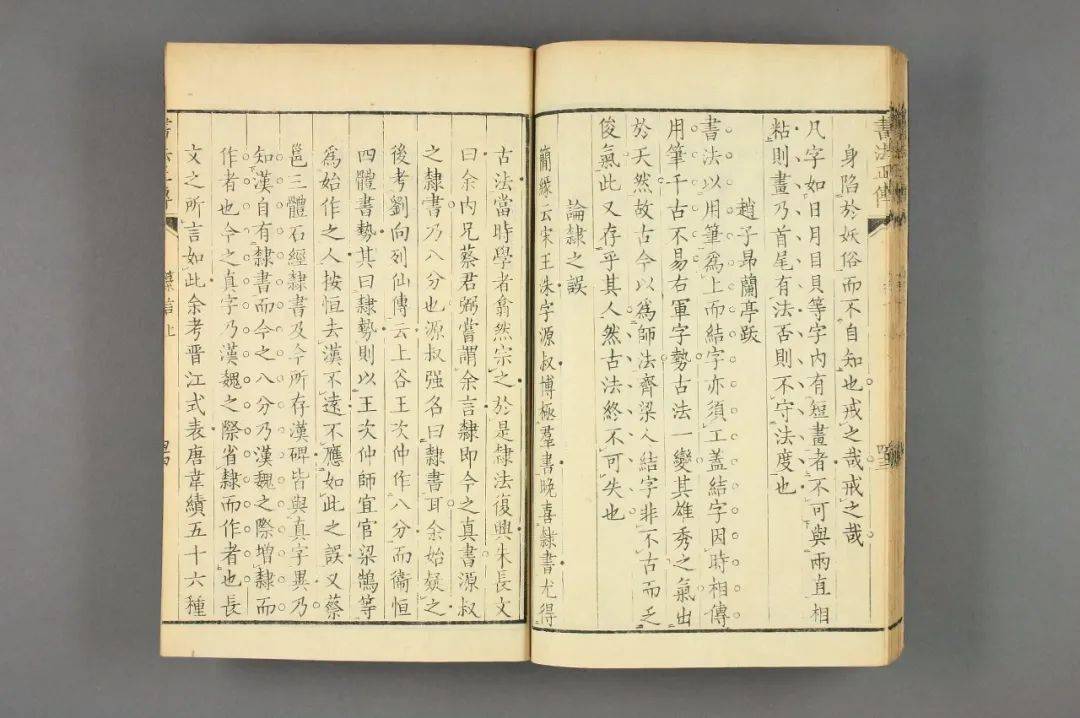 書法正傳
身陷於妖俗而不自知也戒之哉戒之哉
凡字如日月目貝等字內有短畫者不可與兩直相
粘則畫乃首尾有法否則不守法度也
趙子昂蘭亭跋
書法以用筆爲上而結字亦須工蓋結字因時相傳
用筆千古不易右軍字勢古法一變其雄秀之氣出
於天然故古今以爲師法齊梁人結字非不古而乏
俊氣此又存乎其人然古法終不可失也
論隸之誤
蘭緣云宋王洙字源叔博極羣書晚喜隸書尤得
古法當時學者翕然宗之於是隸法復興朱長文
曰余內兄蔡君弼嘗謂余言隸即今之真書源叔
之隸書乃八分也源叔强名曰隸書耳余始疑之
後考劉向列仙傳云上谷王次仲作八分而衞恒
四體書勢其曰隸勢則以王次仲師宜官梁鵠等
爲始作之人按恒去漢不遠不應如此之誤又蔡
邕三體石經隸書及今所存漢碑皆與真字異乃
知漢自有隸書而今之八分乃漢魏之際增隸而
作者也今之真字乃漢魏之際省隸而作者也長
文之所言如此余考晋江式表唐韋續五十六種
纂言上